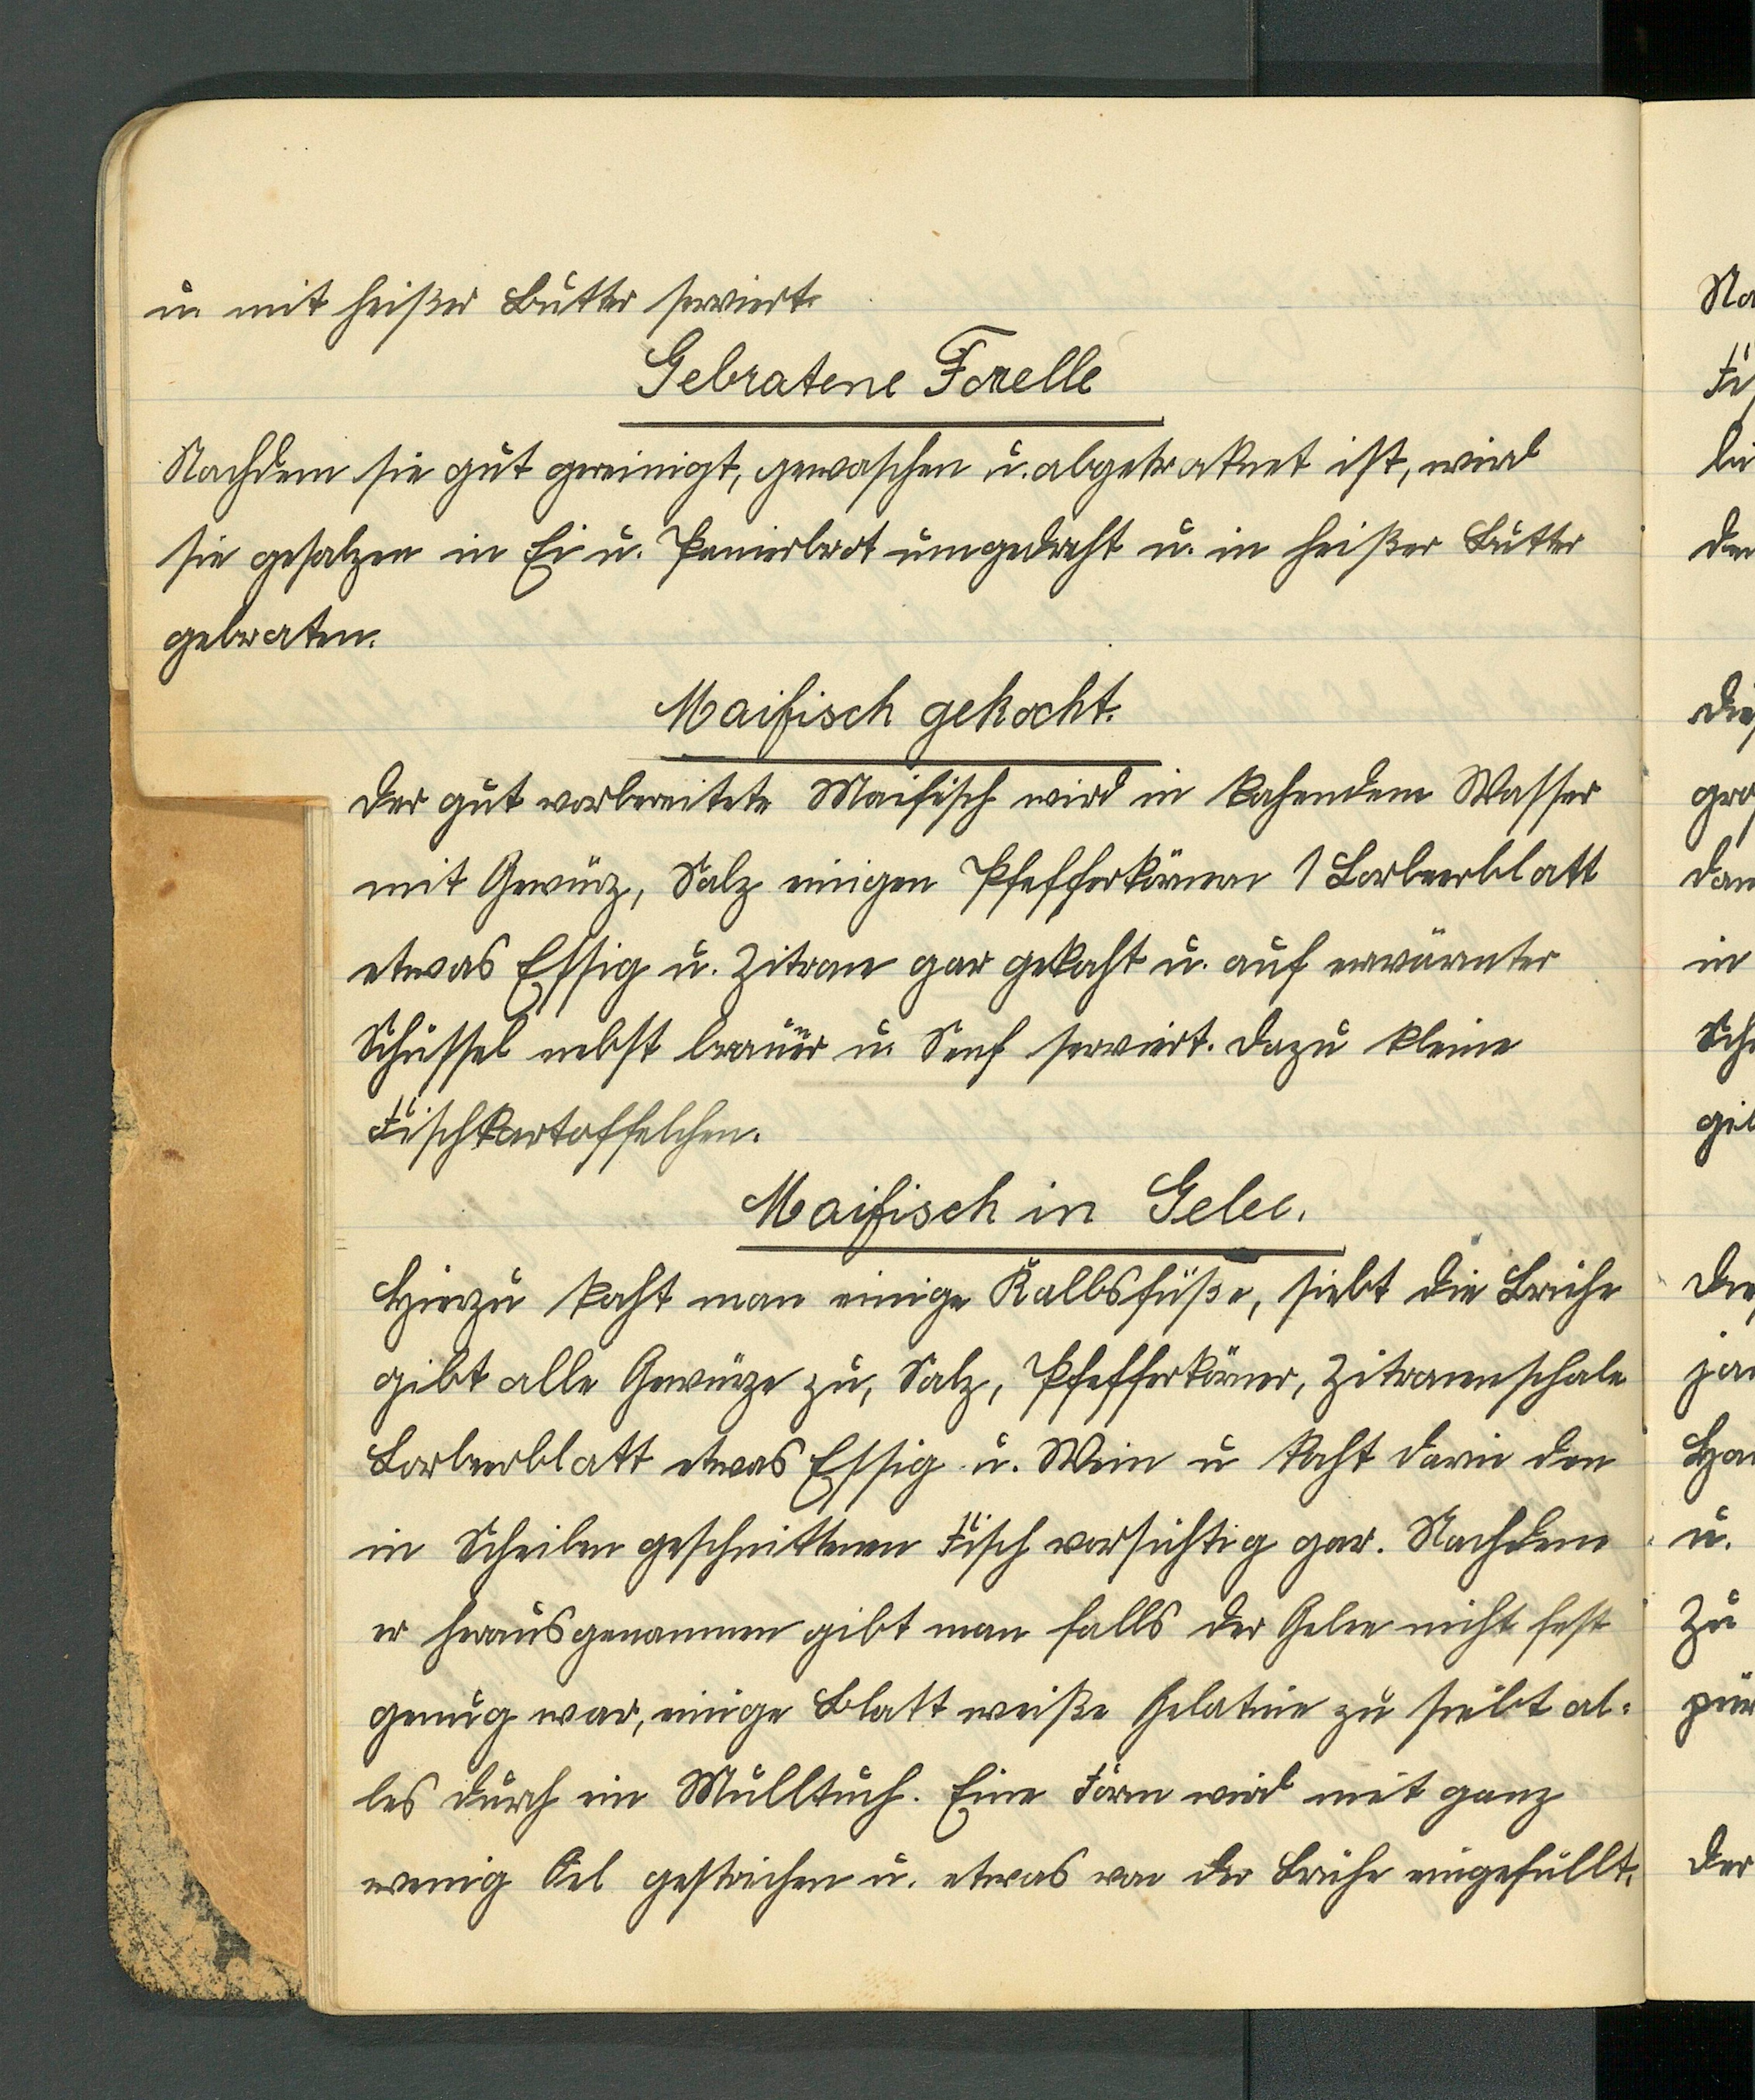 u. mit heißer Butter serviert.
Gebratene Forelle
Nachdem sie gut gereinigt, gewaschen u. abgetroknet ist, wird
sie gesalzen in Ei u. Panierbrot umgedreht u. in heißer Butter
gebraten.
Maifisch gekocht.
Der gut vorbereitete Maifisch wird in kochendem Wasser
mit Gewürz, Salz einigen Pfefferkörnern 1 Lorbeerblatt
etwas Essig u. Zitrone gar gekocht u. auf erwärmter
Schüssel nebst u. Senf serviert. Dazu kleine
Fischkartoffelchen.
Maifisch in Gelee.
Hierzu kocht man einige Kalbsfüße, siebt die Brühe
gibt alle Gewürze zu, Salz, Pfefferkörner, Zitronenschale
Lorbeerblatt etwas Essig u. Wein u kocht darin den
in Scheiben geschnittenen Fisch vorsichtig gar. Nachdem
er herausgenommen gibt man falls der Gelee nicht fest
genug war, einige Blatt weiße Gelatine zu siebt al-
les durch ein Mulltuch. Eine Form wird mit ganz
wenig Oel gestrichen u. etwas von der Brühe eingefüllt.